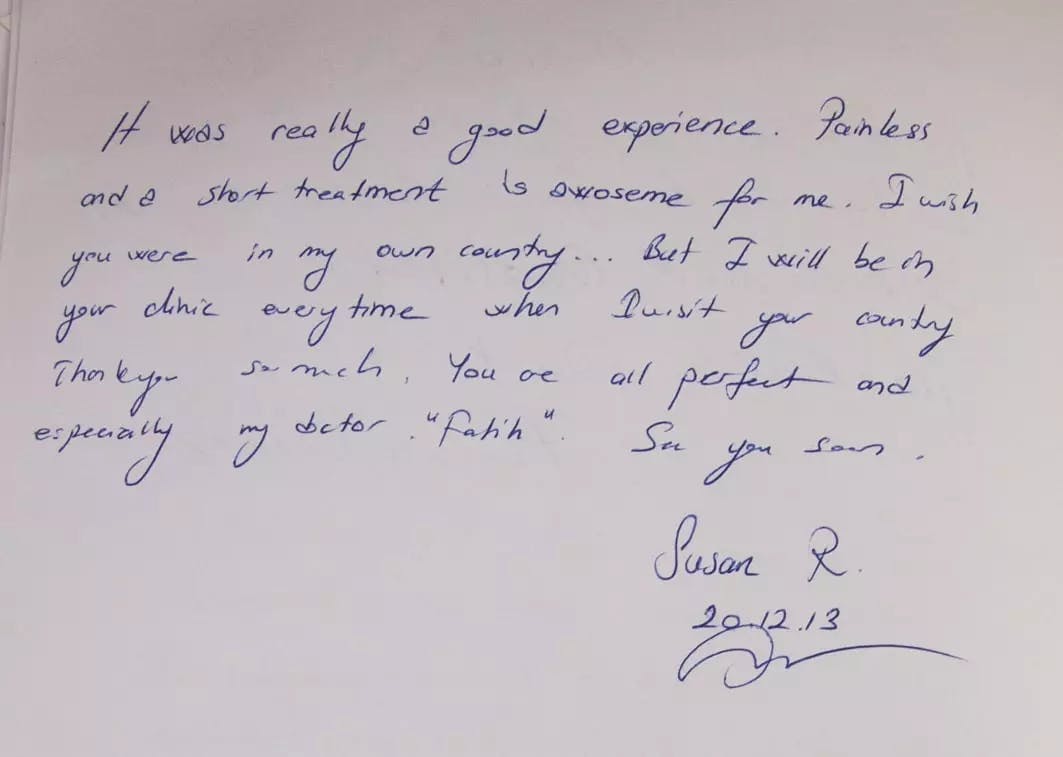 It was really a good experience. Painless
and a short treatment is awoseme for me. I wish
you were in my own country... But I will be in
your clinic every time when I visit your country
Thank you so much. You are all perfect and
especially my doctor "Fatih". See you soon.
Susan R.
20.12.13